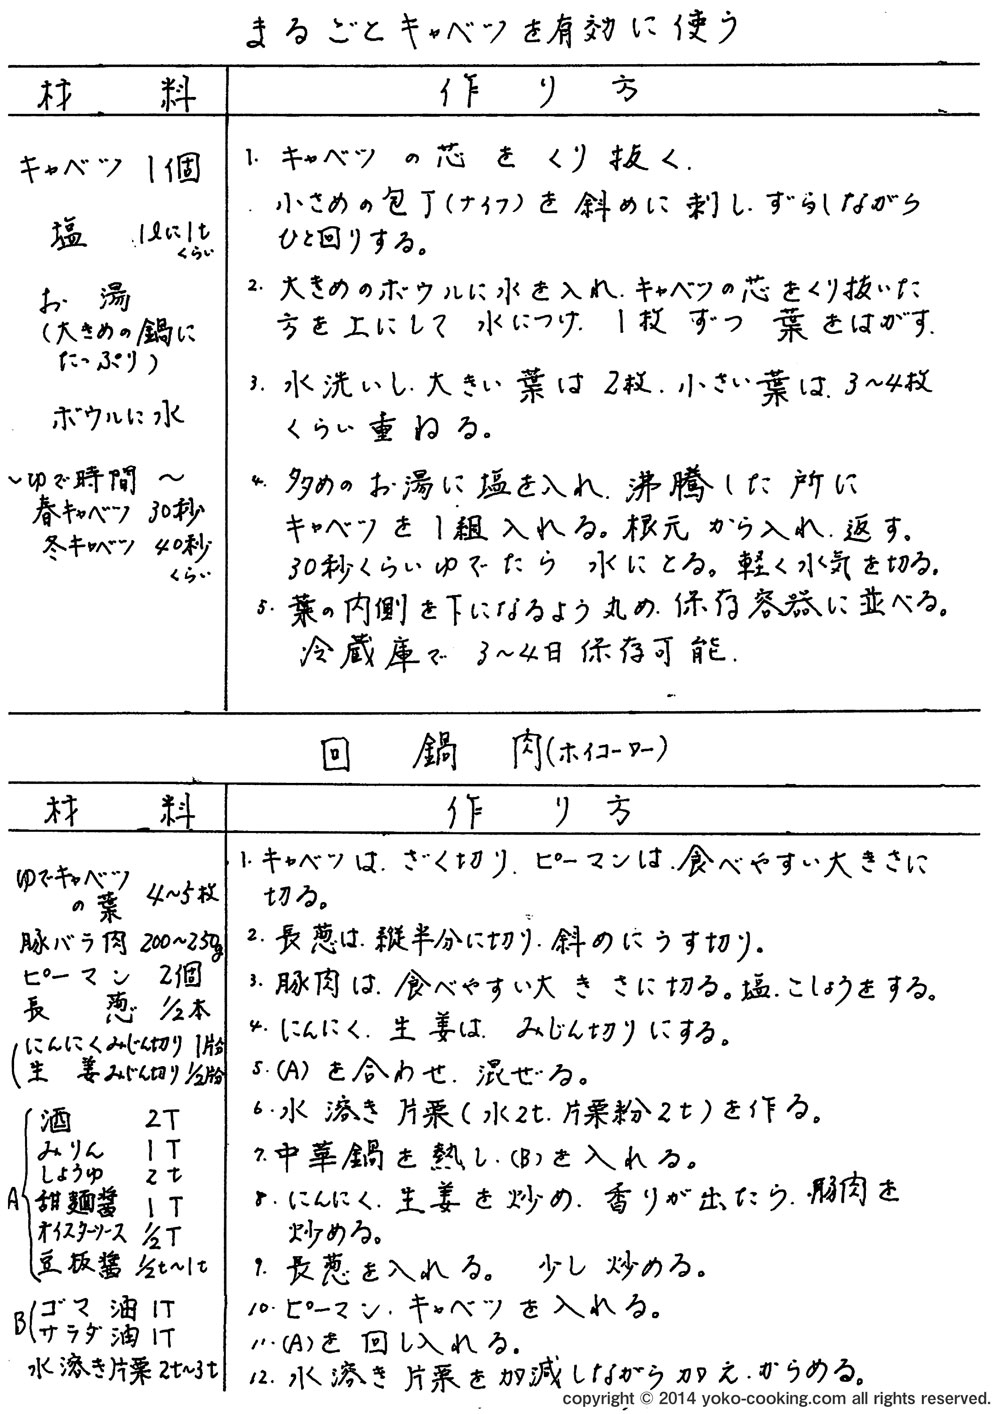 まるごとキャベツを有効に使う
材 料
作 り 方
キャベツ 1個
塩 1lに1t
くらい
お 湯
(大きめの鍋に
たっぷり)
ボウルに水
~ゆで時間~
春キャベツ 30秒
冬キャベツ 40秒
くらい
1. キャベツの芯をくり抜く.
小さめの包丁(ナイフ)を斜めに刺し.ずらしながら
ひと回りする。
2. 大きめのボウルに水を入れ.キャベツの芯をくり抜いた
方を上にして水につけ.1枚ずつ葉をはがす.
3. 水洗いし.大きい葉は2枚.小さい葉は.3~4枚
くらい重ねる。
4. 多めのお湯に塩を入れ.沸騰した所に
キャベツを1組入れる。根元から入れ.返す。
30秒くらいゆでたら水にとる。軽く水気を切る。
5. 葉の内側を下になるよう丸め.保存容器に並べる。
冷蔵庫で3~4日保存可能.
回 鍋 肉(ホイコーロー)
材 料
作 り 方
ゆでキャベツ
の葉 4~5枚
豚バラ肉 200~250g
ピーマン 2個
長 葱 1/2本
にんにくみじん切り 1片分
生 姜みじん切り 1/2片分
A
酒 2T
みりん 1T
しょうゆ 2t
甜麺醤 1T
オイスターソース 1/2T
豆板醤 1/2t~1t
B
ゴマ油 1T
サラダ油 1T
水溶き片栗 2t~3t
1. キャベツは.ざく切り.ピーマンは.食べやすい大きさに
切る。
2. 長葱は.縦半分に切り.斜めにうす切り。
3. 豚肉は.食べやすい大きさに切る。塩.こしょうをする。
4. にんにく.生姜は.みじん切りにする。
5. (A)を合わせ.混ぜる。
6. 水溶き片栗(水2t.片栗粉2t)を作る。
7. 中華鍋を熱し.(B)を入れる。
8. にんにく.生姜を炒め.香りが出たら.豚肉を
炒める。
9. 長葱を入れる。 少し炒める。
10. ピーマン.キャベツを入れる。
11. (A)を回し入れる。
12. 水溶き片栗を加減しながら加え.からめる。
copyright © 2014 yoko-cooking.com all rights reserved.